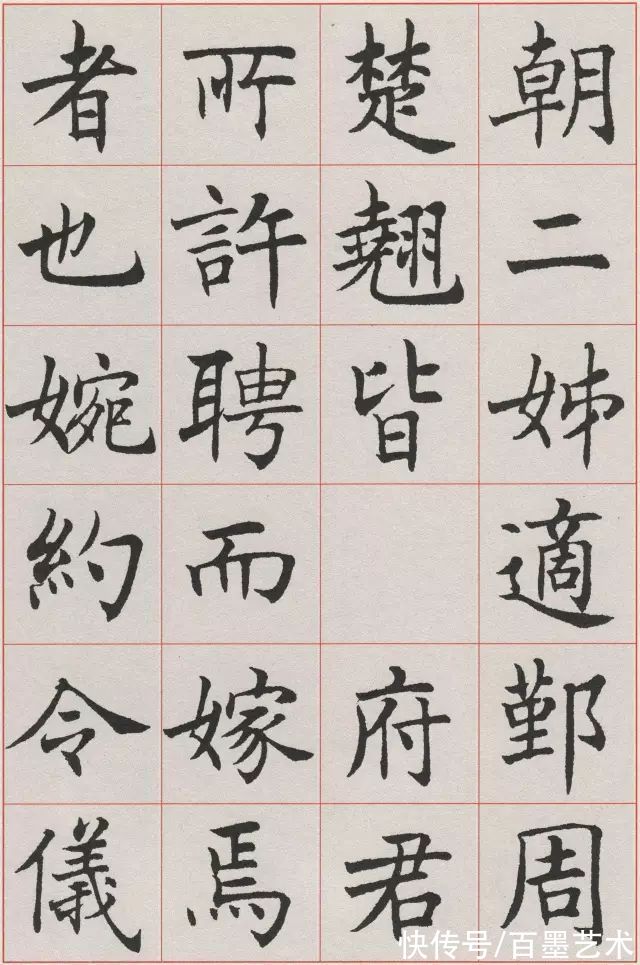 朝二姊適鄞周
楚翹皆 府君
所許聘而嫁焉
者也婉約令儀
快传号/百墨艺术